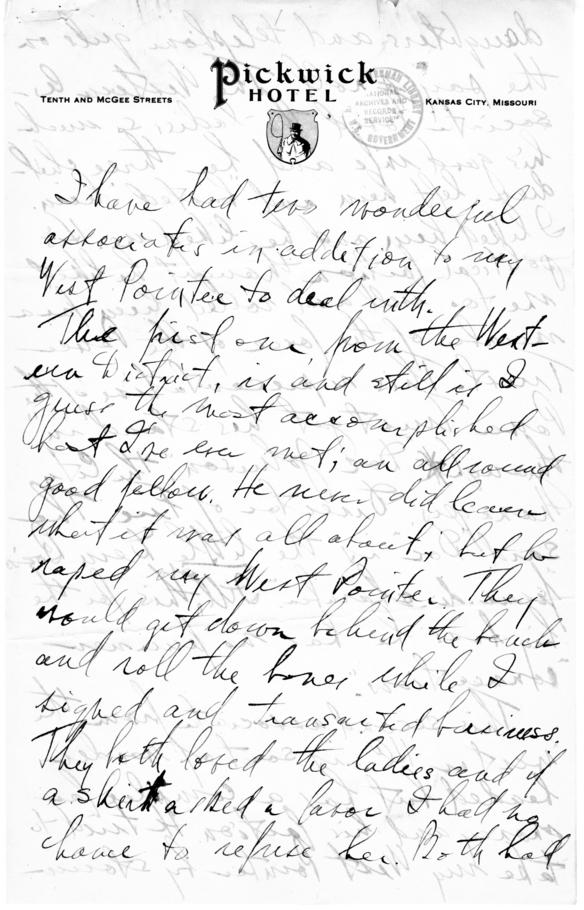 Pickwick
HOTEL
TENTH AND MCGEE STREETS
KANSAS CITY, MISSOURI
NATIONAL
ARCHIVES AND
RECORDS
SERVICE
I have had two wonderful
associates in addition to my
West Pointer to deal with.
The first one, from the West-
ern District, is and still is I
guess the most accomplished
I've ever met; an all round
good fellow. He never did learn
what it was all about; but he
my West Pointer. They
would get down behind the bench
and roll the bones while I
signed and transacted business.
They both loved the ladies and if
a skirt asked a favor I had no
chance to refuse her. Both had